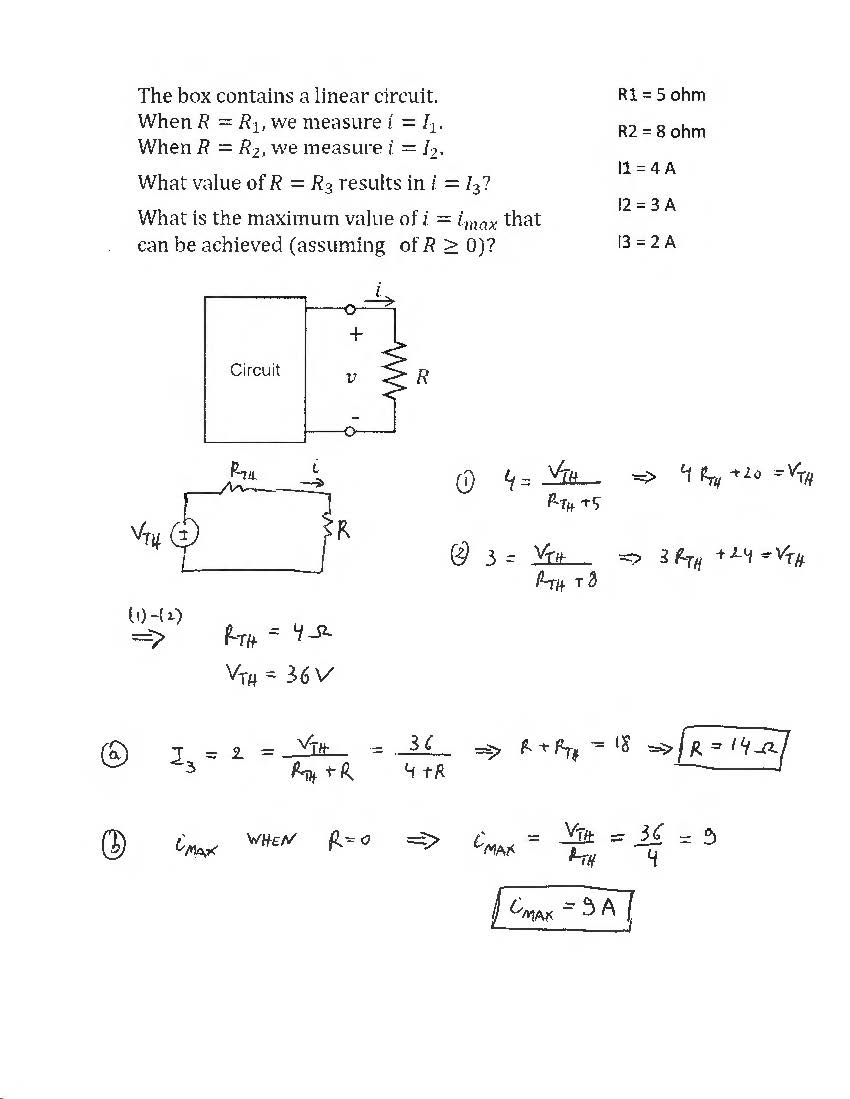 The box contains a linear circuit.
When R = R₁, we measure i = I₁.
When R = R₂, we measure i = I₂.
What value of R = R₃ results in i = I₃?
What is the maximum value of i = i_max that
can be achieved (assuming of R ≥ 0)?
R1 = 5 ohm
R2 = 8 ohm
I1 = 4 A
I2 = 3 A
I3 = 2 A
i
+
Circuit
v
R
-
R_TH
i
V_TH
R
① 4 = V_TH / (R_TH + 5) ⇒ 4 R_TH + 20 = V_TH
② 3 = V_TH / (R_TH + 8) ⇒ 3 R_TH + 24 = V_TH
(1)-(2)
⇒ R_TH = 4 Ω
V_TH = 36 V
ⓐ I₃ = 2 = V_TH / (R_TH + R) = 36 / (4 + R) ⇒ R + R_TH = 18 ⇒ R = 14 Ω
ⓑ i_MAX WHEN R = 0 ⇒ i_MAX = V_TH / R_TH = 36 / 4 = 9
i_MAX = 9 A